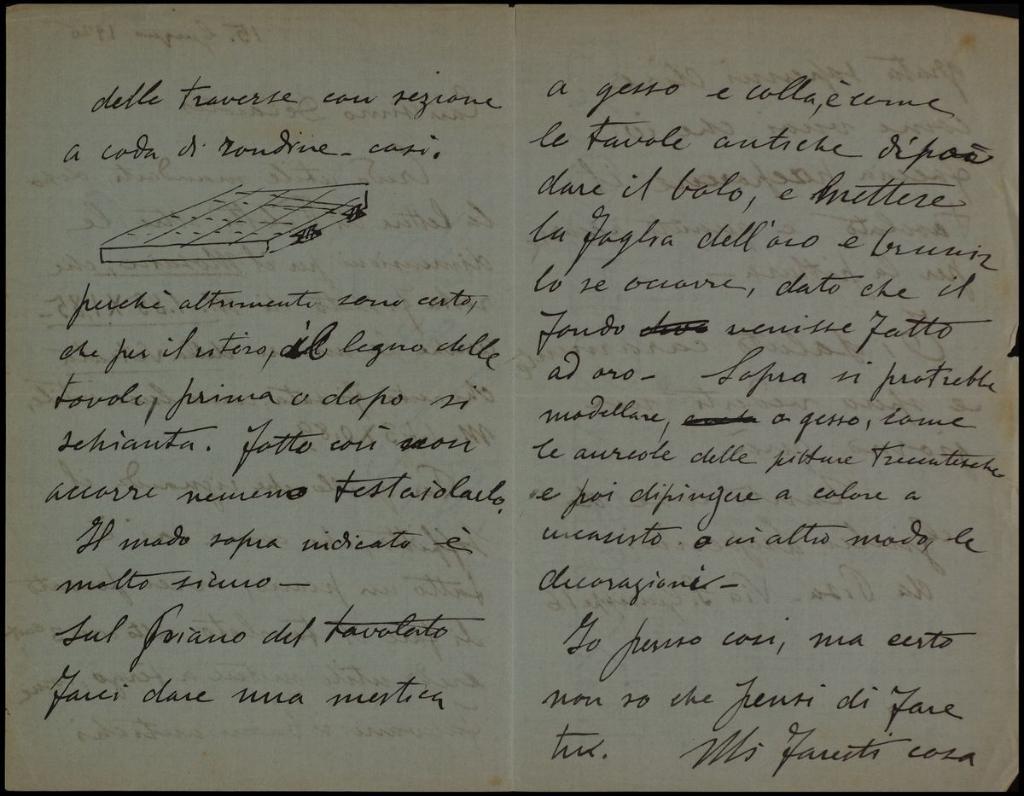 delle traverse con sezione
a coda di rondine - così.
perchè altrimenti sono certo,
che per il ritiro, il legno delle
tavole, prima o dopo si
schianta. Fatto così non
occorre nemeno
Il modo sopra indicato è
molto sicuro -
Sul piano del tavolato
farei dare una mestica
a gesso e colla, e come
le tavole antiche di poi
dare il bolo, e mettere
la foglia dell'oro e brunir
lo se occorre, dato che il
fondo venisse fatto
ad oro - Sopra si protrebbe
modellare, a gesso, come
le aureole delle pitture trecentesche
e poi dipingere a colore a
encausto o in altro modo, le
decorazioni -
Io penso così, ma certo
non so che pensi di fare
tu. Mi faresti cosa